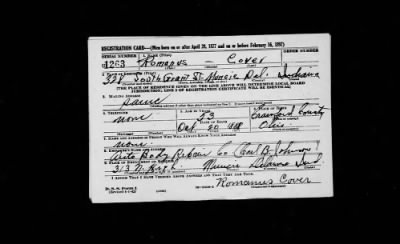 REGISTRATION CARD—(Men born on or after April 28, 1877 and on or before February 16, 1897)
SERIAL NUMBER 1. NAME (Print) ORDER NUMBER
1263 Romanus — Cover
2. PLACE OF RESIDENCE (Print)
338 South Grant St. Muncie Del. Indiana
[THE PLACE OF RESIDENCE GIVEN ON THE LINE ABOVE WILL DETERMINE LOCAL BOARD
JURISDICTION; LINE 2 OF REGISTRATION CERTIFICATE WILL BE IDENTICAL]
3. MAILING ADDRESS
Same
4. TELEPHONE 5. AGE IN YEARS 6. PLACE OF BIRTH
none 53 Crawford County
DATE OF BIRTH
Oct 20 Ohio
7. NAME AND ADDRESS OF PERSON WHO WILL ALWAYS KNOW YOUR ADDRESS
none
8. EMPLOYER'S NAME AND ADDRESS
Auto Body Repair Co Johnson
313 N. High Muncie Delaware Ind
I AFFIRM THAT I HAVE VERIFIED ABOVE ANSWERS AND THAT THEY ARE TRUE.
Romanus Cover